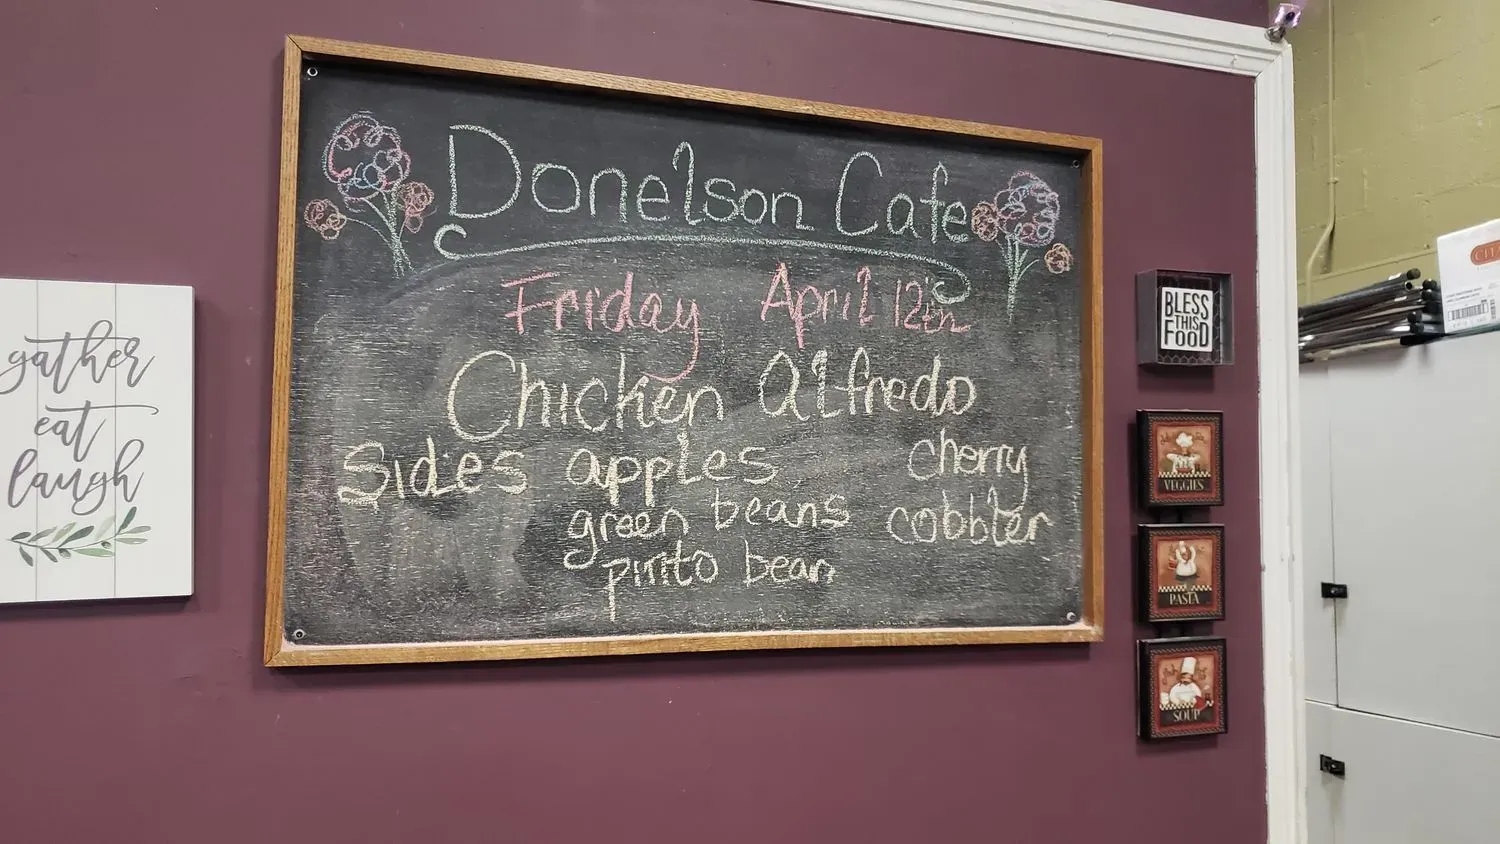 Donelson Cafe
Friday April 12th
Chicken Alfredo
Sides apples
green beans
pinto bean
cherry
cobbler
gather
eat
laugh
BLESS
THIS
FOOD
VEGGIES
PASTA
SOUP